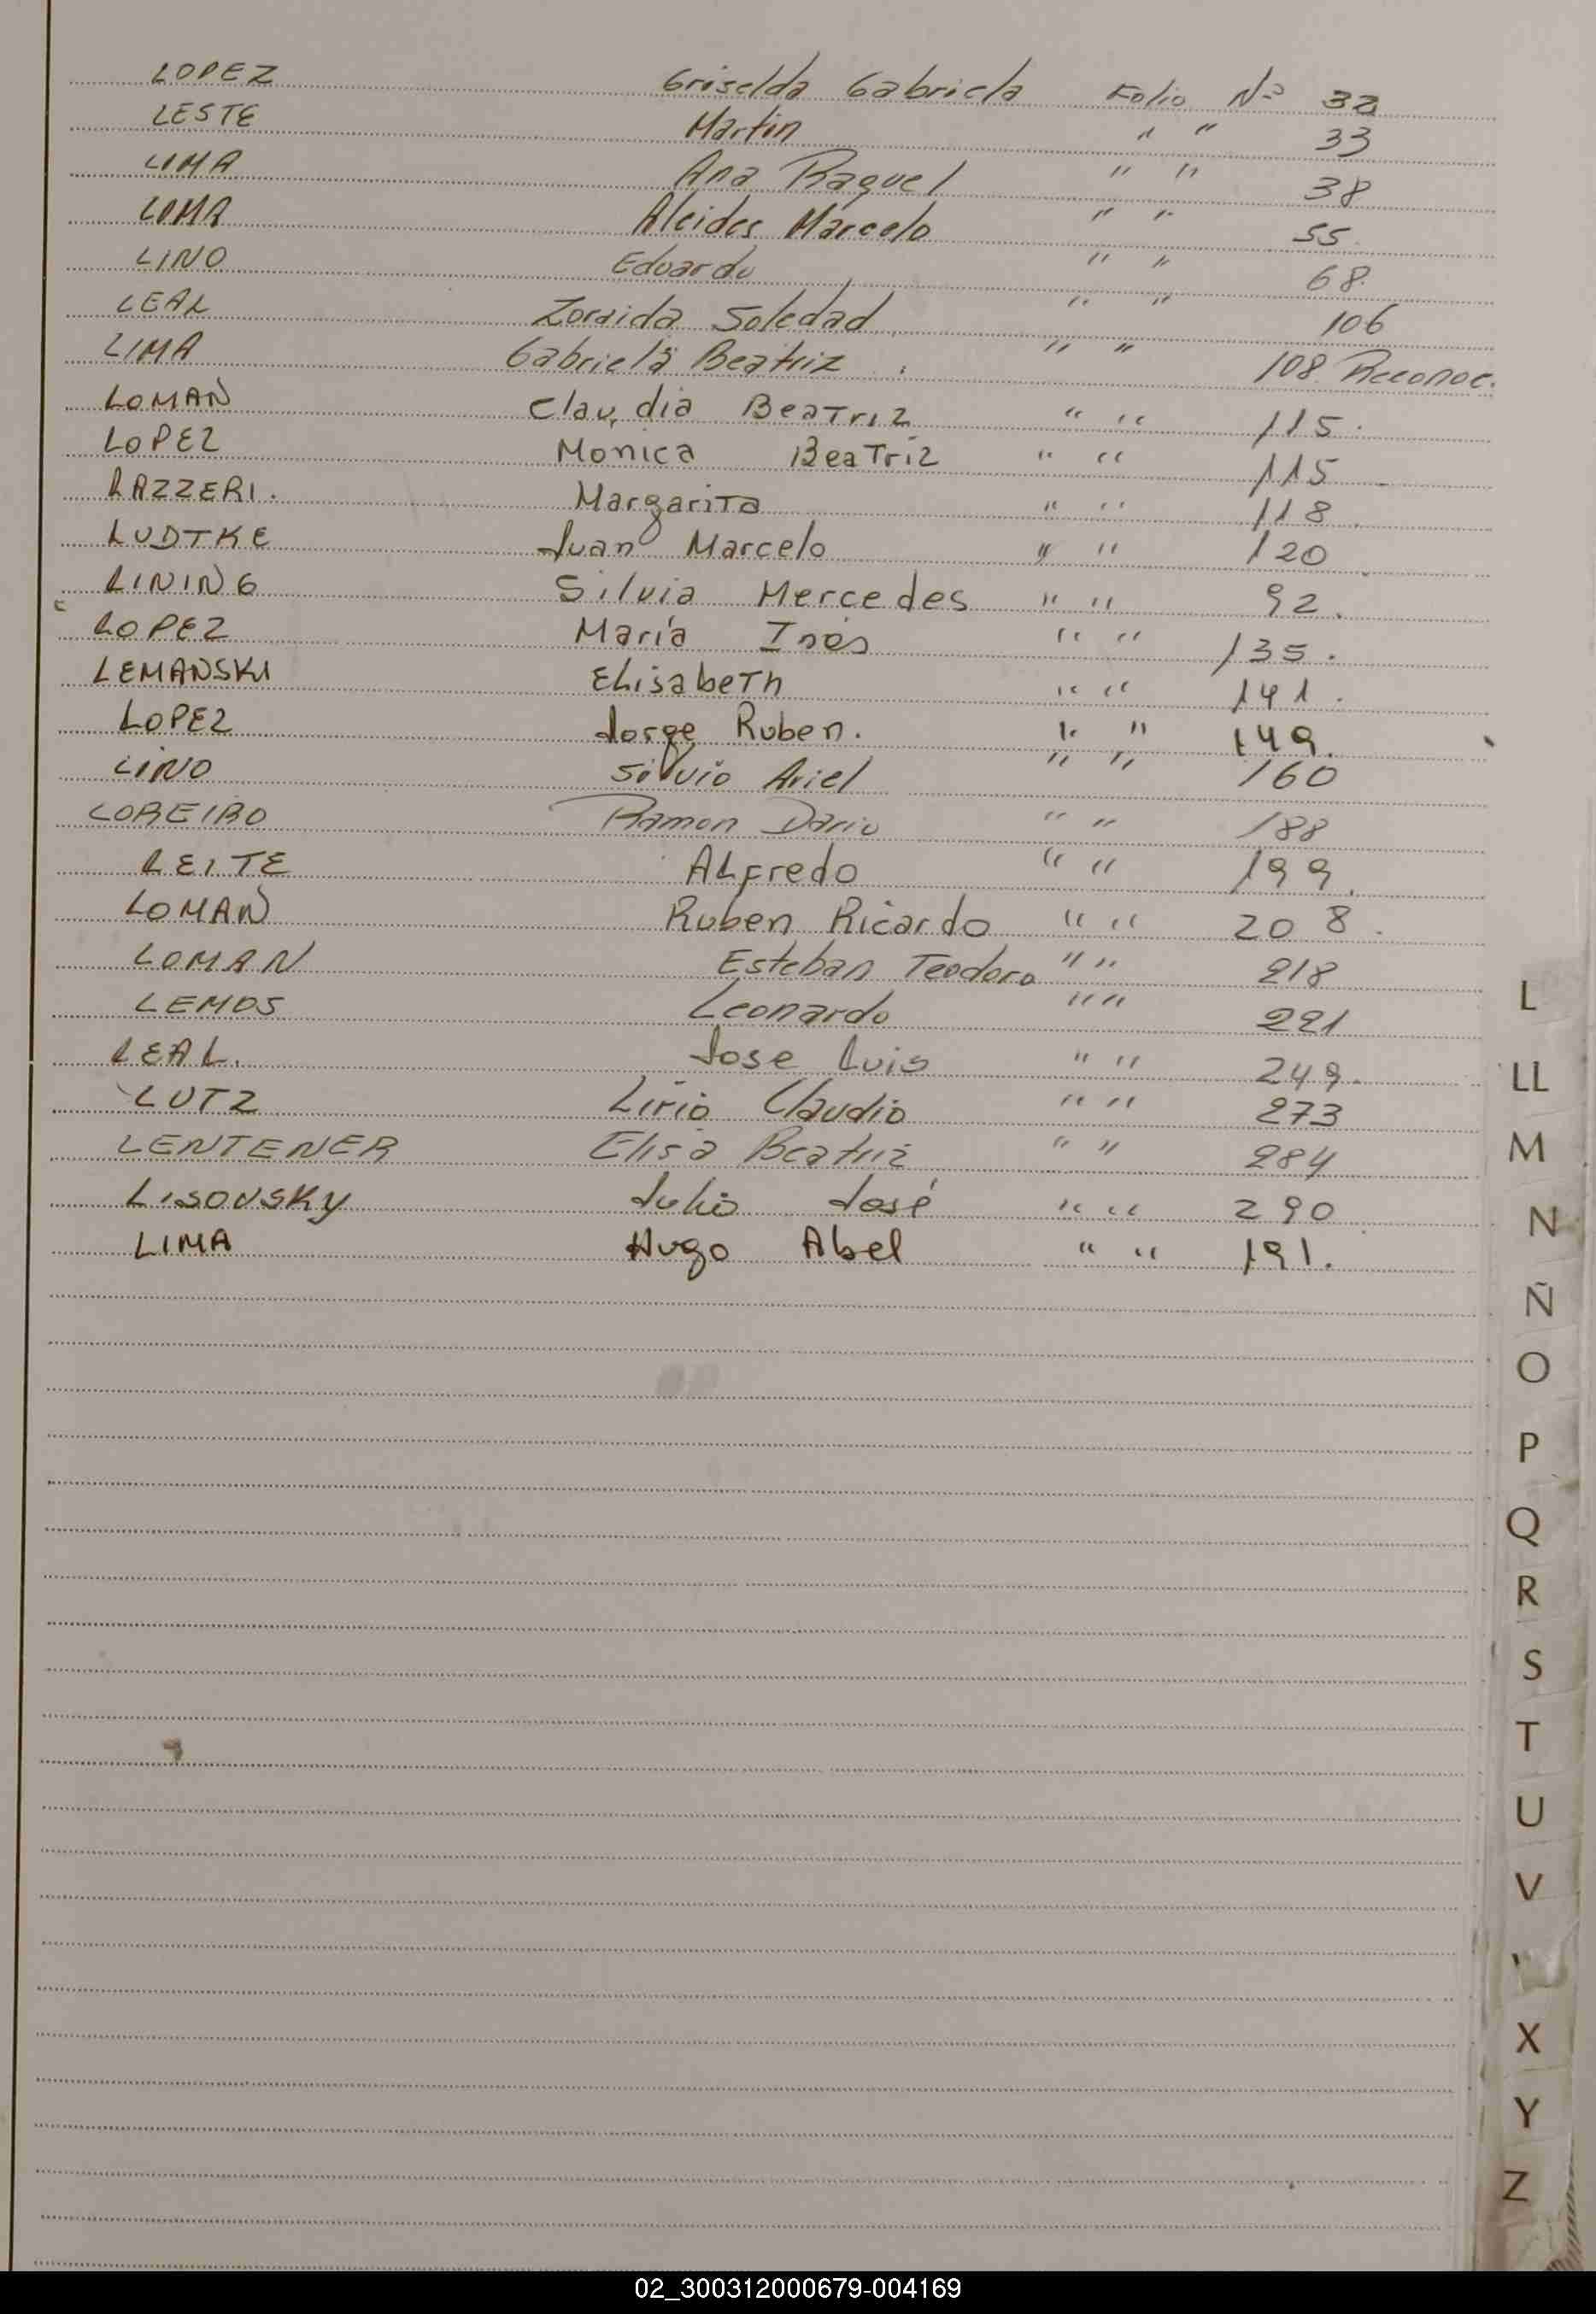 LOPEZ Griselda Gabriela Folio Nº 32
LESTE Martin " " 33
LIMA Ana Raquel " " 38
LIMA Alcides Marcelo " " 55
LINO Eduardo " " 68
LEAL Zoraida Soledad " " 106
LIMA Gabriela Beatriz " " 108 Reconoc.
LOMAN Claudia Beatriz " " 115.
LOPEZ Monica Beatriz " " 115
LAZZERI. Margarita " " 118.
LUDTKE Juan Marcelo " " 120
LINING Silvia Mercedes " " 92.
LOPEZ María Inés " " 135.
LEMANSKI Elisabeth " " 141.
LOPEZ Jorge Ruben. " " 149.
LINO Silvio Ariel " " 160
LOREIRO Ramon Dario " " 188
LEITE Alfredo " " 199.
LOMAN Ruben Ricardo " " 208.
LOMAN Esteban Teodoro " " 218
LEMOS Leonardo " " 221
LEAL. Jose Luis " " 249.
LUTZ Lirio Claudio " " 273
LENTENER Elisa Beatriz " " 284
LISOVSKY Julio José " " 290
LIMA Hugo Abel " " 191.
L
LL
M
N
Ñ
O
P
Q
R
S
T
U
V
X
Y
Z
02_300312000679-004169